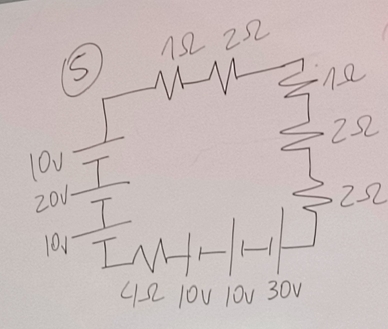 5
1Ω 2Ω
1Ω
2Ω
2Ω
10V
20V
10V
4Ω 10V 10V 30V